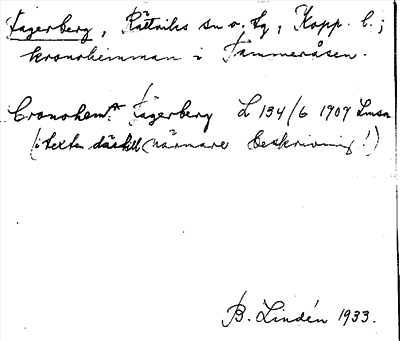 Fagerberg, Rättviks sn o. tg, Kopp. l.;
kronohemman i Jämmeråsen.
Cronohem: Fagerberg L 134/6 1909 Lmsa
(i texten därtill närmare beskrivning!)
B. Lindén 1933.